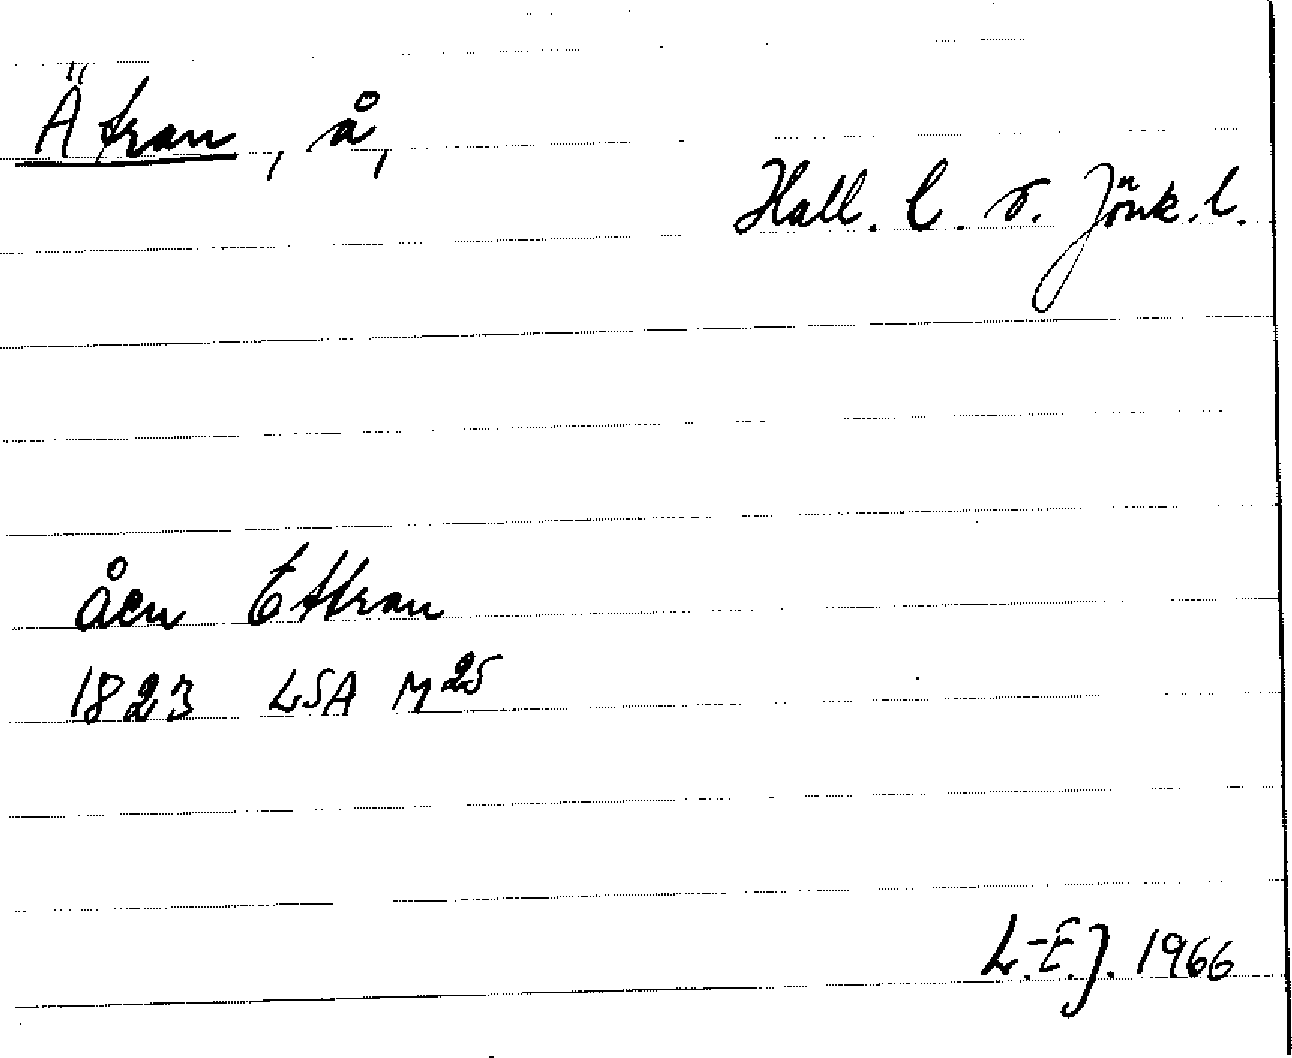 Ätran, å,
Hall. l. o. Jönk. l.
Åen Ettran
1823 LSA M25
L.-E.J. 1966